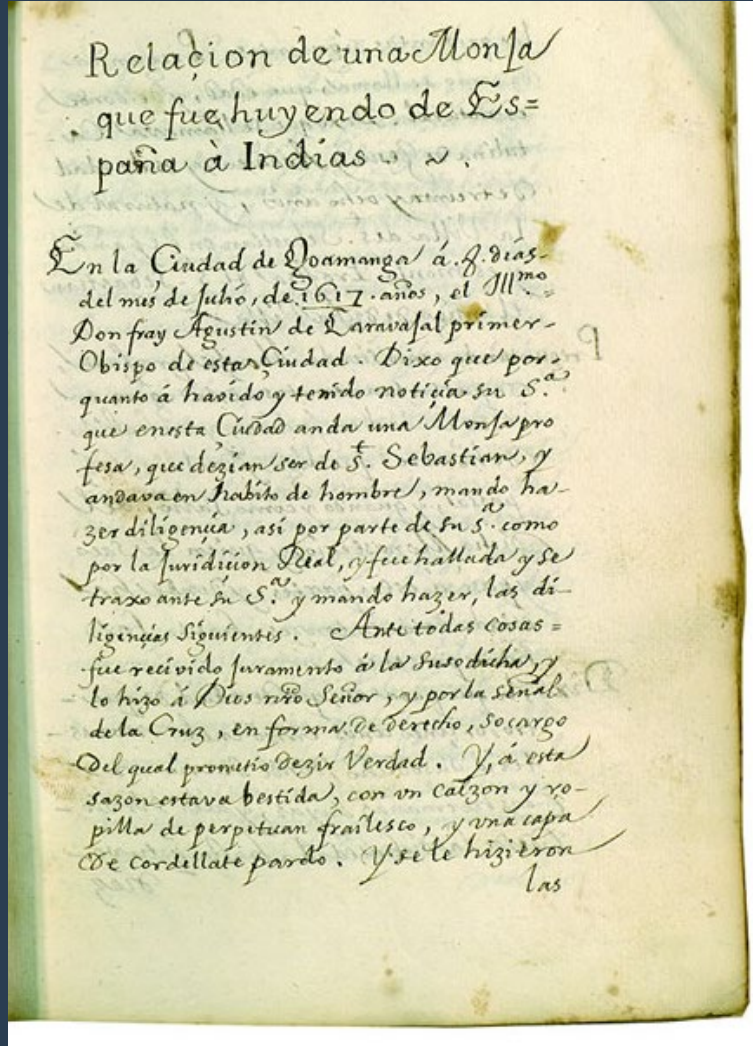 Relaçion de una Monja
que fue huyendo de Es=
paña à Indias
En la Ciudad de Goamanga á 8. dias
del mes de Julio, de 1617. años, el Illmo
Don fray Agustin de Caravajal primer
Obispo de esta Ciudad. Dixo que por
quanto á havido y tenido notiçia su Sª
que en esta Ciudad anda una Monja pro
fesa, que dezian ser de St. Sebastian, y
andava en habito de hombre, mando ha-
zer diligençia, asi por parte de su Sª. como
por la Juridiçion Real, y fue hallada y se
traxo ante su S.ª y mando hazer, las di-
ligençias siguientes. Ante todas cosas=
fue recivido Juramento á la susodicha, y
lo hizo á Dios nro Señor, y por la señal
de la Cruz, en forma de derecho, so cargo
del qual prometio dezir Verdad. Y, á esta
sazon estava bestida, con un calzon y ro-
pilla de perpetuan frailesco, y una capa
de cordellate pardo. Y se le hizieron
las